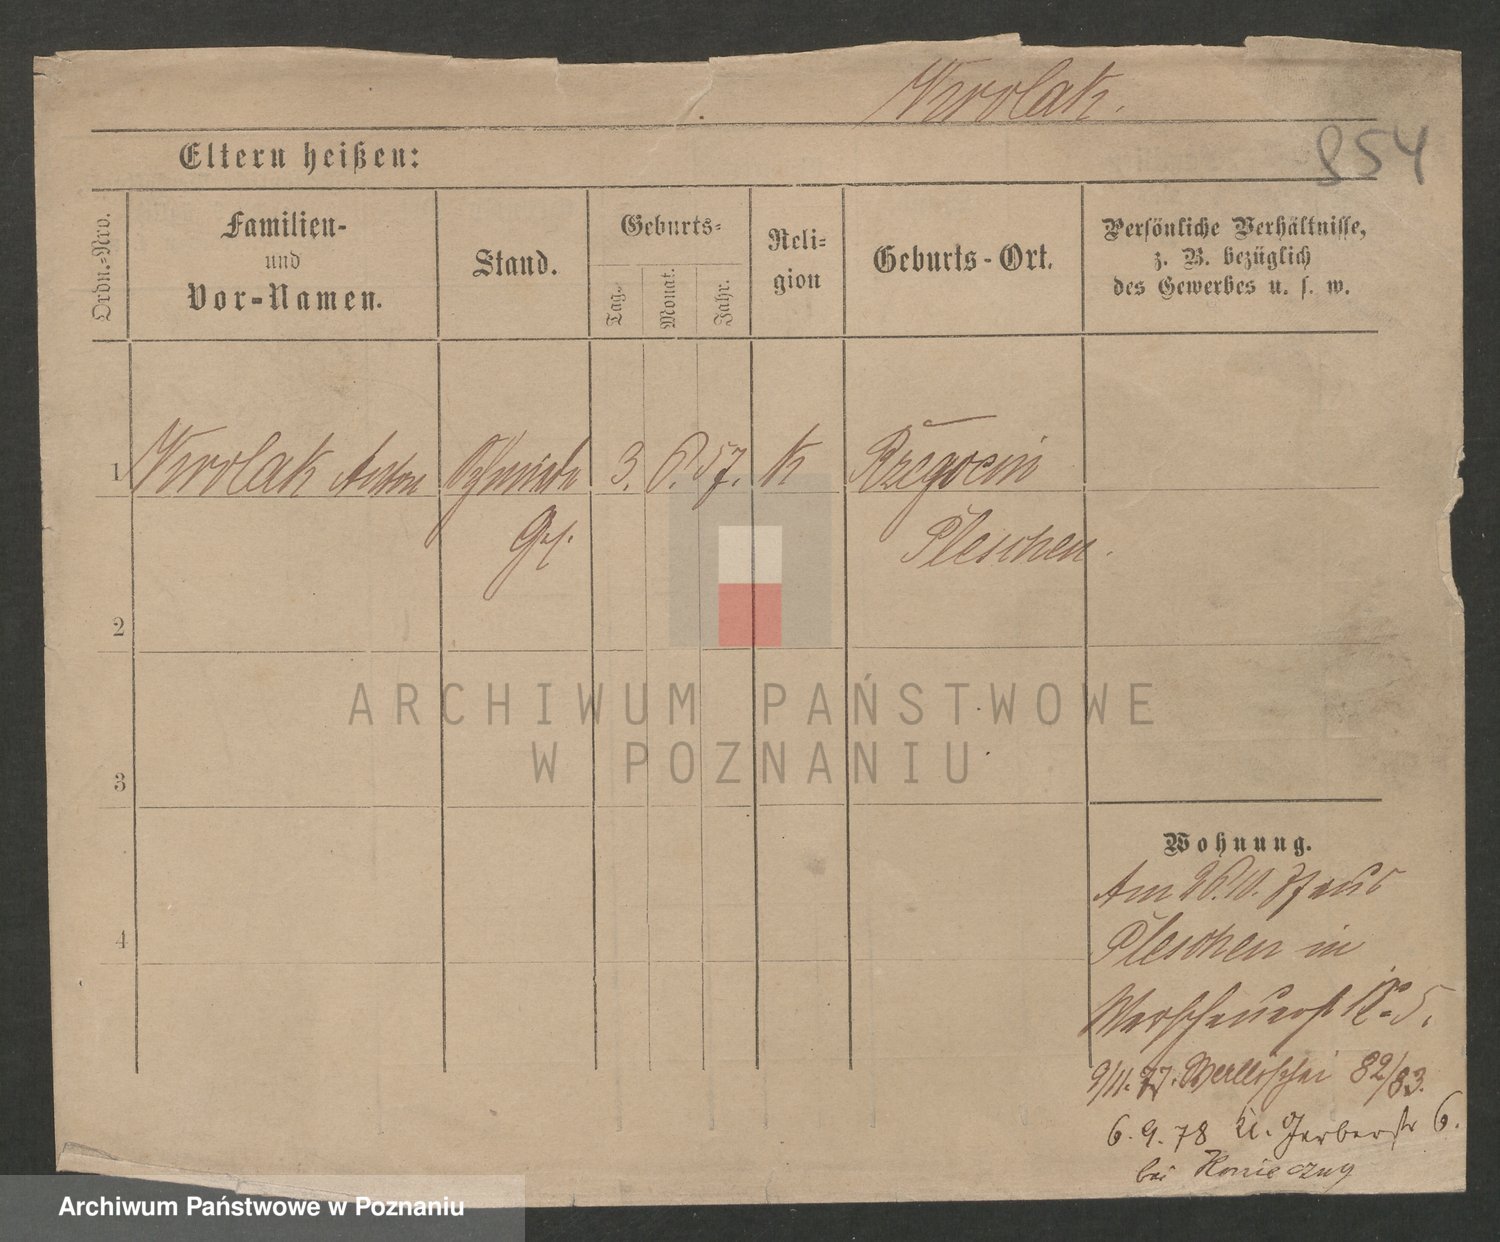 Krolak.
854
Eltern heißen:
Ordn.-Nro.
Familien-
und
Vor-Namen.
Stand.
Geburts-
Tag.
Monat.
Jahr.
Reli-
gion
Geburts-Ort.
Persönliche Verhältnisse,
z. B. bezüglich
des Gewerbes u. s. w.
1 Krolak Anton 3. 6. 57. k
Pleschen.
2
3
4
ARCHIWUM PAŃSTWOWE
W POZNANIU
Wohnung.
Am 26.10. 77 aus
Pleschen in
5.
9/11. 77. Wallischei 82/83.
6. 9. 78 Kl. Gerberstr 6.
bei
Archiwum Państwowe w Poznaniu